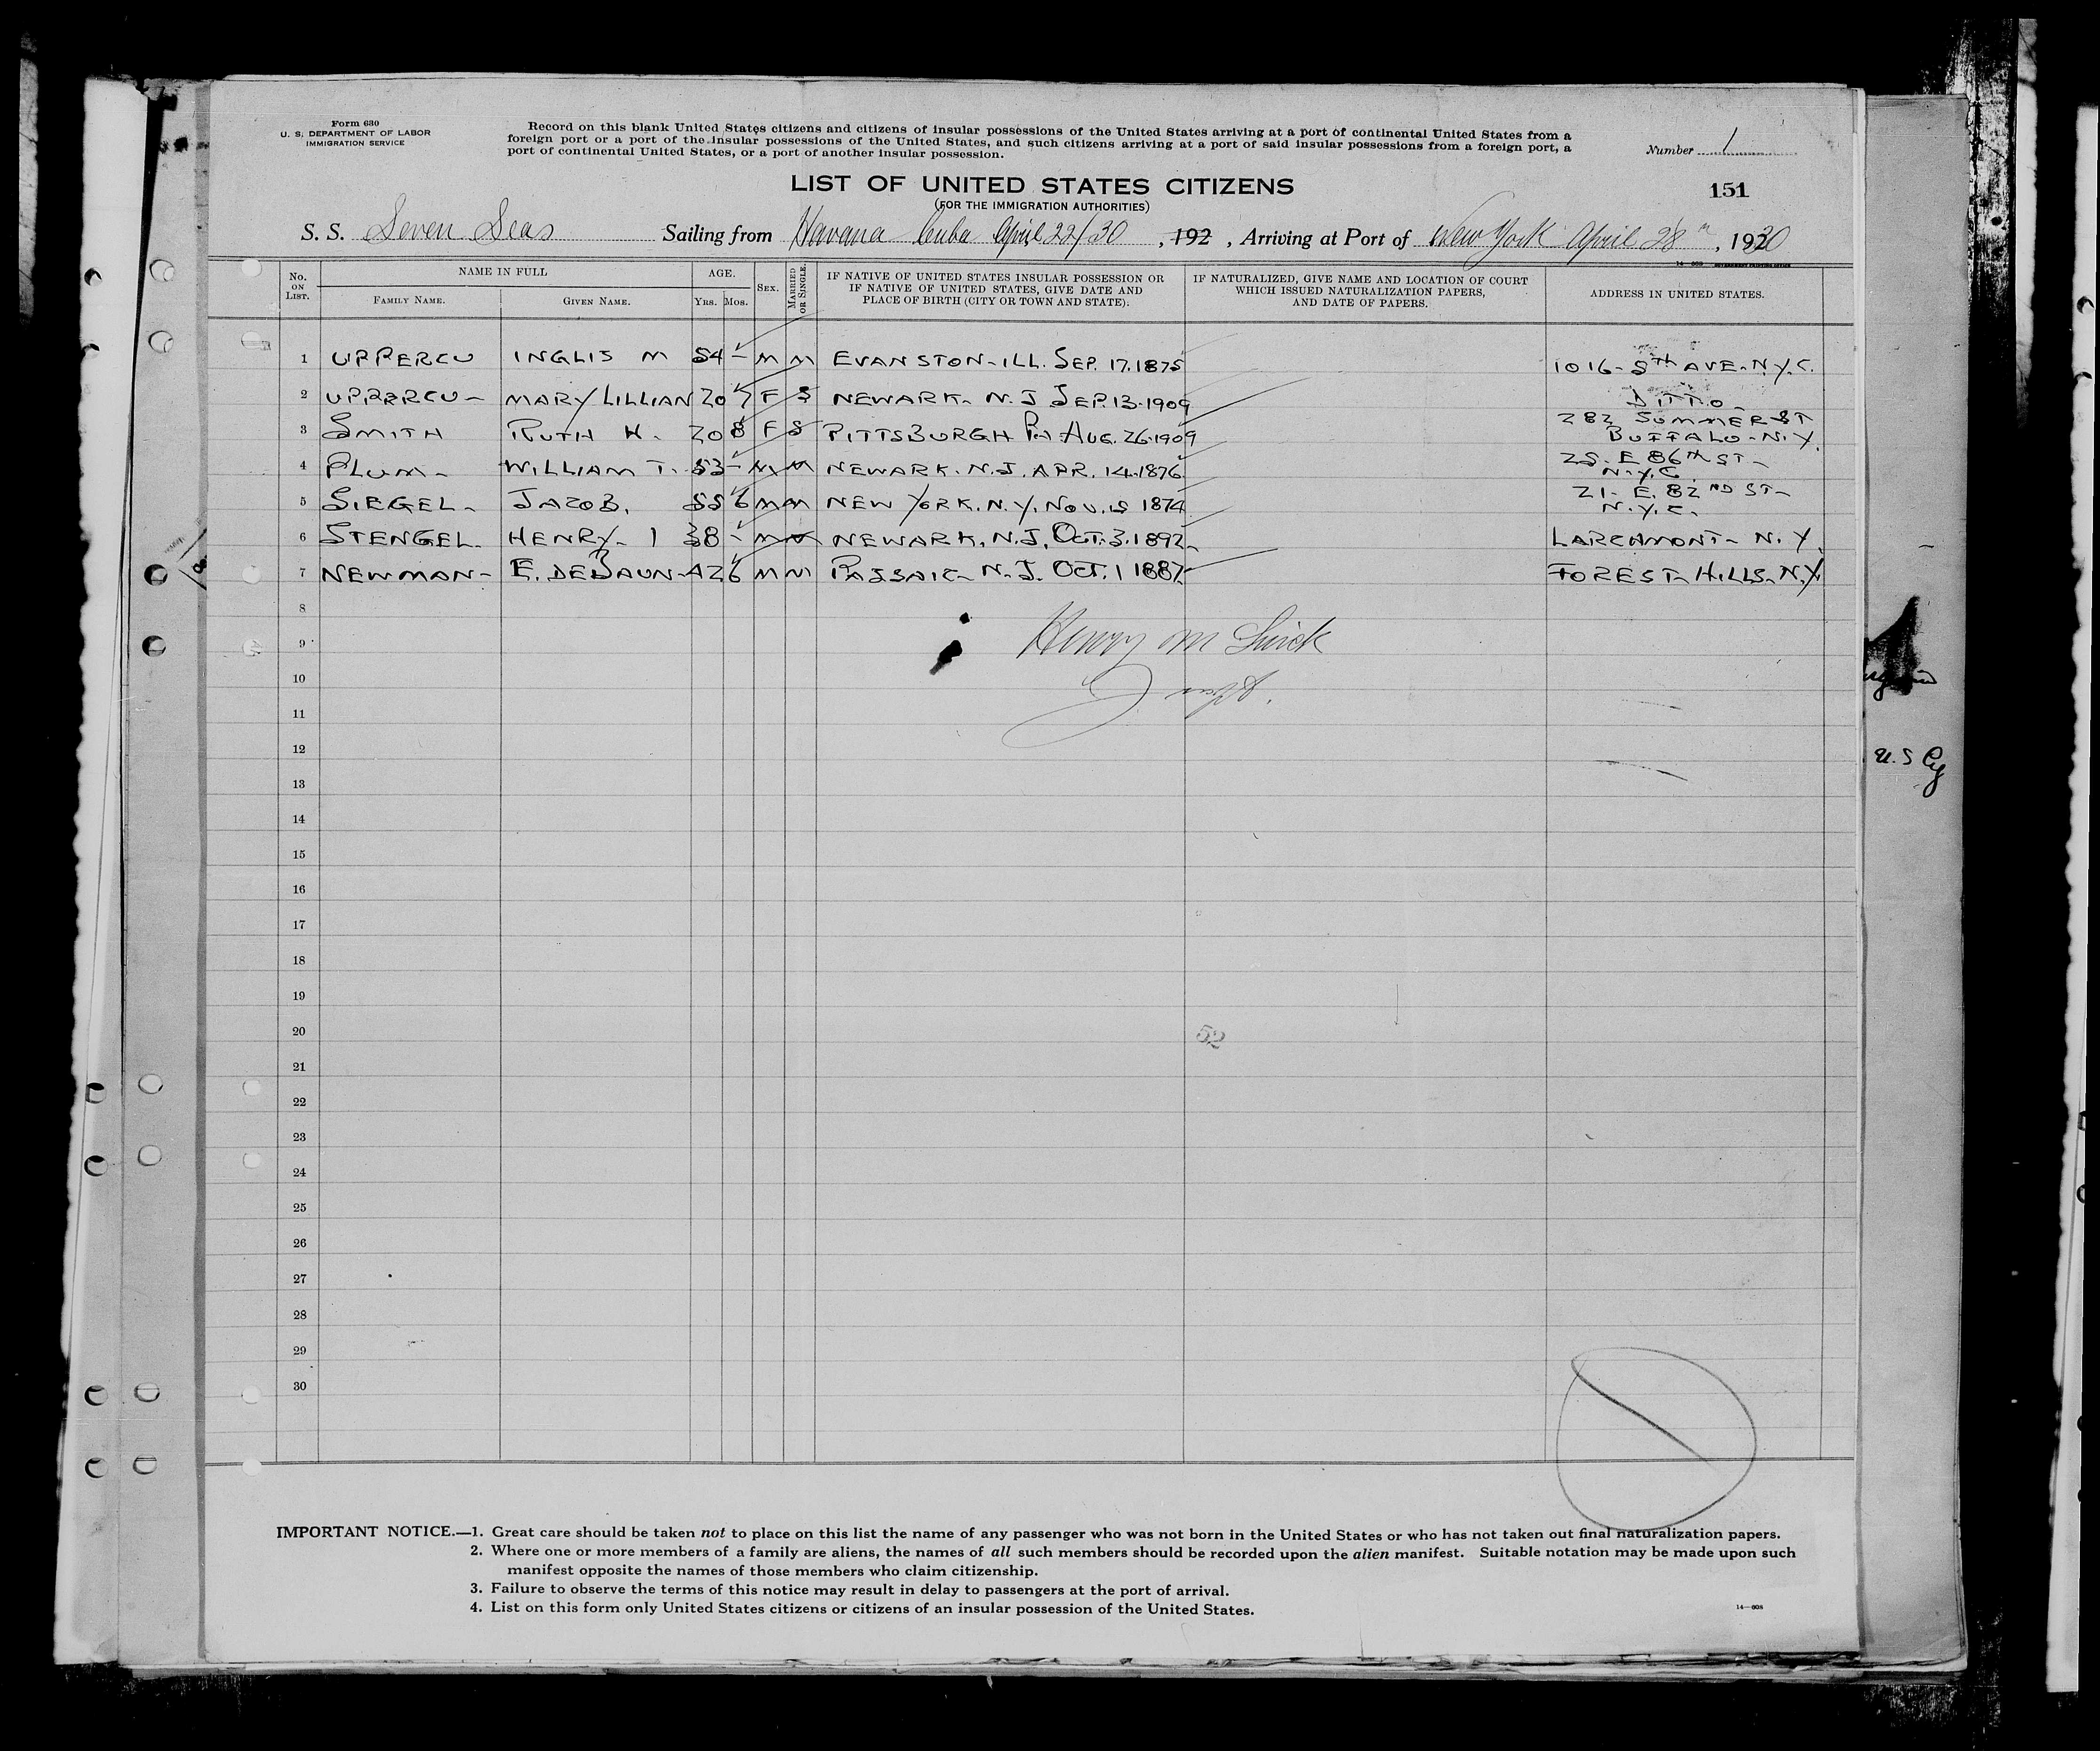 Form 630
U. S. DEPARTMENT OF LABOR
IMMIGRATION SERVICE
Record on this blank United States citizens and citizens of insular possessions of the United States arriving at a port of continental United States from a
foreign port or a port of the insular possessions of the United States, and such citizens arriving at a port of said insular possessions from a foreign port, a
port of continental United States, or a port of another insular possession.
Number 1
LIST OF UNITED STATES CITIZENS
151
(FOR THE IMMIGRATION AUTHORITIES)
S. S. Seven Seas Sailing from Havana Cuba April 22/30, 192 , Arriving at Port of New York April 28, 1930
No. ON LIST. NAME IN FULL AGE. SEX. MARRIED OR SINGLE. IF NATIVE OF UNITED STATES INSULAR POSSESSION OR IF NATIVE OF UNITED STATES, GIVE DATE AND PLACE OF BIRTH (CITY OR TOWN AND STATE). IF NATURALIZED, GIVE NAME AND LOCATION OF COURT WHICH ISSUED NATURALIZATION PAPERS, AND DATE OF PAPERS. ADDRESS IN UNITED STATES.
FAMILY NAME. GIVEN NAME. YRS. MOS.
1 UPPERCU INGLIS M 54 - M M EVANSTON-ILL. SEP. 17.1875 1016-5TH AVE-N.Y.C.
2 UPPERCU- MARY LILLIAN 20 7 F S NEWARK- N.J SEP.13.1909 DITTO-
3 SMITH RUTH H. 20 8 F S PITTSBURGH PA AUG.26.1909 282 SUMMER ST
BUFFALO-N.Y.
4 PLUM- WILLIAM T. 53 - M M NEWARK.N.J. APR. 14.1876. 25. E 86TH ST-
N.Y.C.
5 SIEGEL- JACOB. 55 6 M M NEW YORK.N.Y. NOV.15 1874 21- E. 82ND ST-
N.Y.C.
6 STENGEL- HENRY- I 38 - M M NEWARK, N.J, OCT.3.1892- LARCHMONT- N.Y.
7 NEWMAN- E. DEBAUN- 42 6 M M PASSAIC- N.J. OCT.1 1887- FOREST-HILLS-N.Y.
8
9 Henry M
10
11
12
13
14
15
16
17
18
19
20
52
21
22
23
24
25
26
27
28
29
30
U.S Cy
IMPORTANT NOTICE.—1. Great care should be taken not to place on this list the name of any passenger who was not born in the United States or who has not taken out final naturalization papers.
2. Where one or more members of a family are aliens, the names of all such members should be recorded upon the alien manifest. Suitable notation may be made upon such
manifest opposite the names of those members who claim citizenship.
3. Failure to observe the terms of this notice may result in delay to passengers at the port of arrival.
4. List on this form only United States citizens or citizens of an insular possession of the United States.